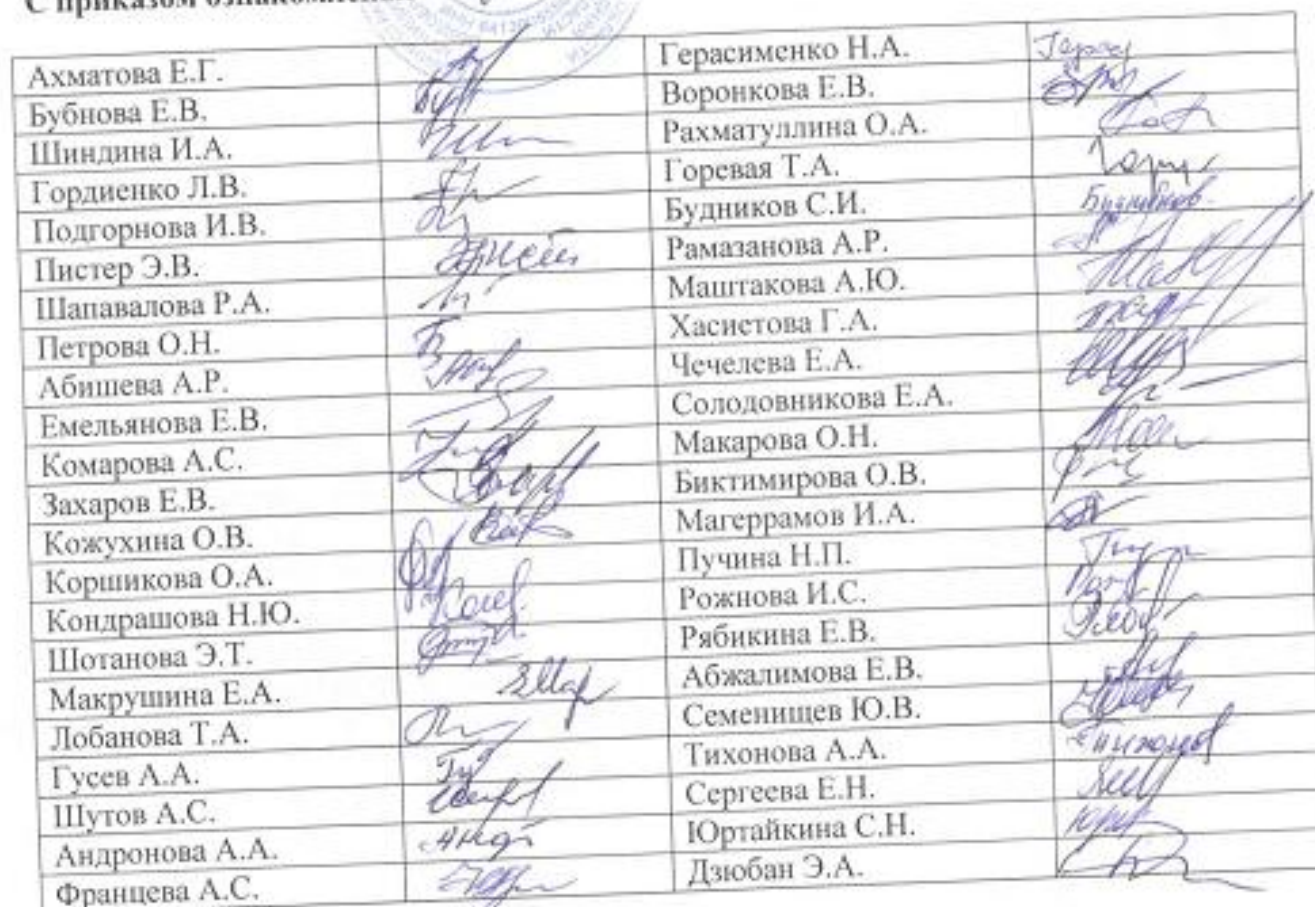 С приказом
Ахматова Е.Г. Герасименко Н.А.
Бубнова Е.В. Воронкова Е.В.
Шиндина И.А. Рахматуллина О.А.
Гордиенко Л.В. Горевая Т.А.
Подгорнова И.В. Будников С.И.
Пистер Э.В. Рамазанова А.Р.
Шапавалова Р.А. Маштакова А.Ю.
Петрова О.Н. Хасиетова Г.А.
Абишева А.Р. Чечелева Е.А.
Емельянова Е.В. Солодовникова Е.А.
Комарова А.С. Макарова О.Н.
Захаров Е.В. Биктимирова О.В.
Кожухина О.В. Магеррамов И.А.
Коршикова О.А. Пучина Н.П.
Кондрашова Н.Ю. Рожнова И.С.
Шотанова Э.Т. Рябикина Е.В.
Макрушина Е.А. Абжалимова Е.В.
Лобанова Т.А. Семенищев Ю.В.
Гусев А.А. Тихонова А.А.
Шутов А.С. Сергеева Е.Н.
Андронова А.А. Юртайкина С.Н.
Францева А.С. Дзюбан Э.А.